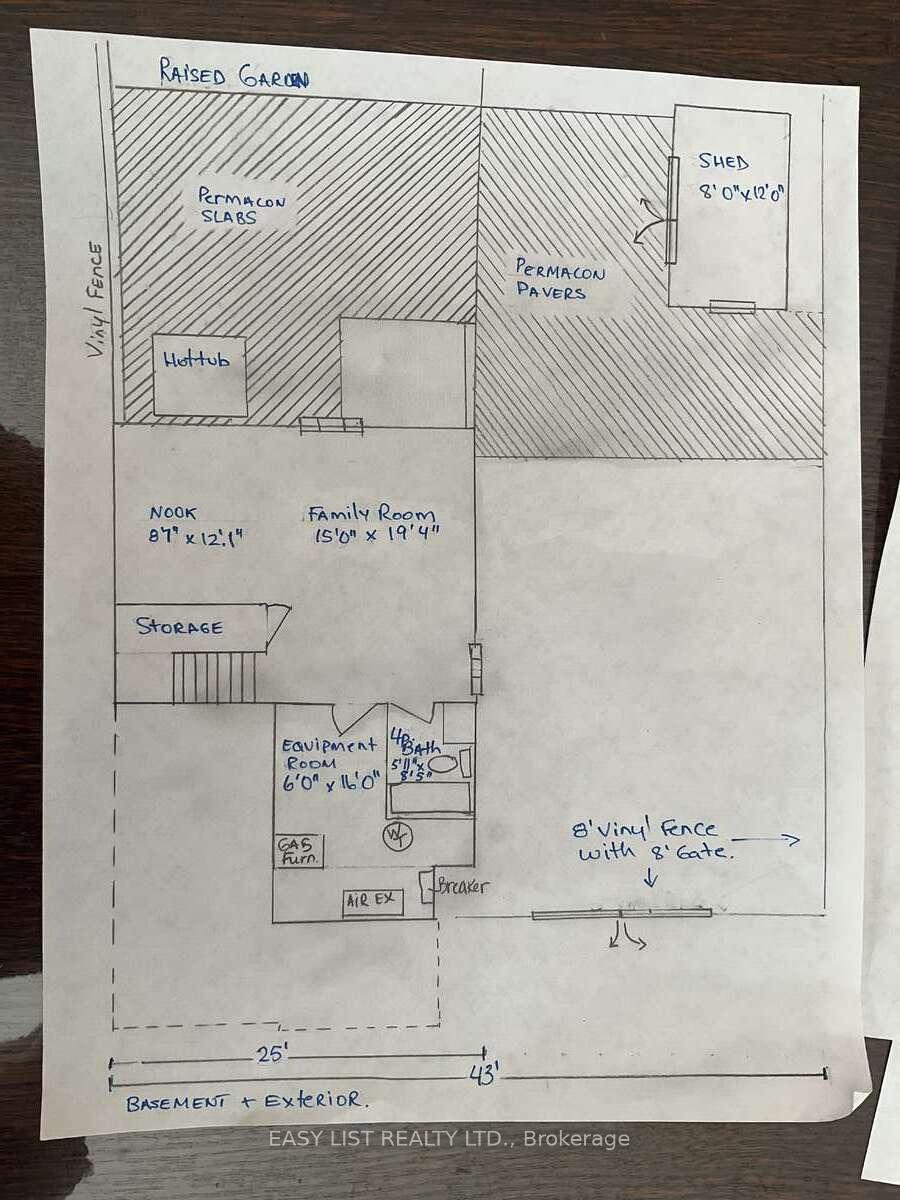 RAISED GARDEN
SHED
8'0" x 12'0"
PERMACON
SLABS
Vinyl FENCE
PERMACON
PAVERS
Hottub
NOOK
87" x 12'.1"
Family Room
15'0" x 19'4"
STORAGE
EQUIPMENT
ROOM
6'0" x 16'0"
4p.
BATH
5'11" x
8'5"
GAS
Furn.
WT
AIR EX
Breaker
8' Vinyl Fence
with 8' Gate.
25'
43'
BASEMENT + EXTERIOR.
EASY LIST REALTY LTD., Brokerage